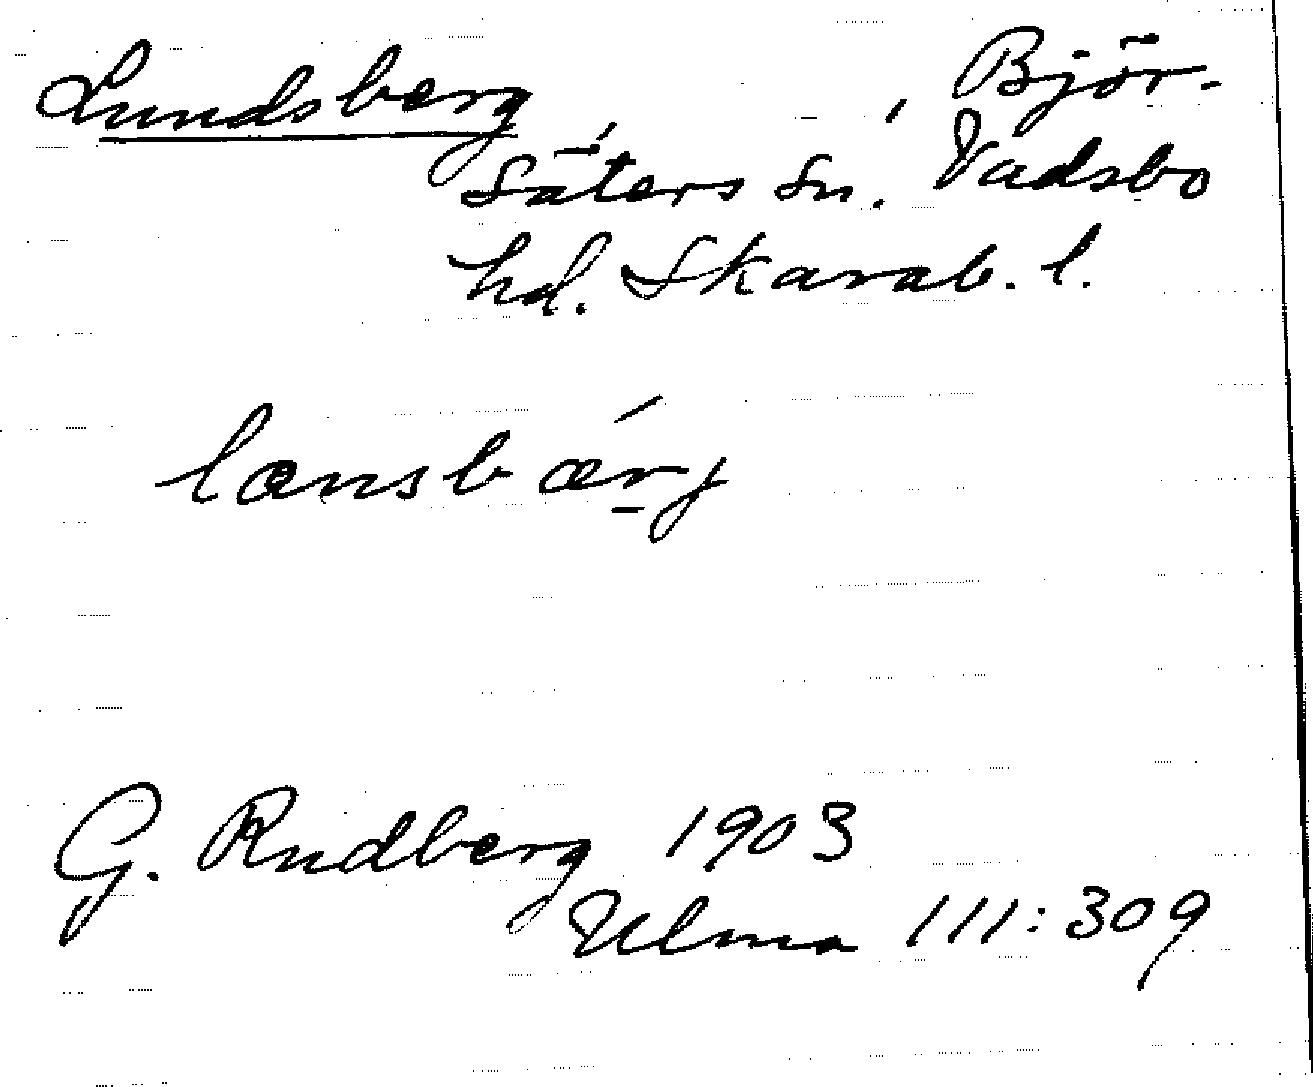 Lundsberg, Björ-
säters sn. Vadsbo
hd. Skarab. l.
lænsbærj
G. Rudberg 1903
Ulma 111:309